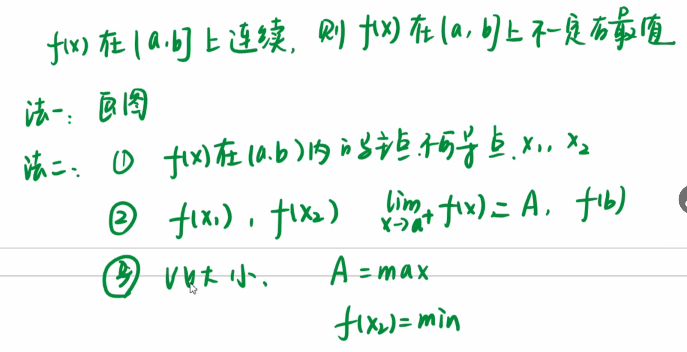 f(x) 在 (a.b] 上连续, 则 f(x) 在 (a, b] 上不一定有最值
法一: 画图
法二: ① f(x) 在 (a.b) 内的驻点.不可导点. x₁, x₂
② f(x₁), f(x₂) lim x→a⁺ f(x) = A, f(b)
③ 比大小. A = max
f(x₂) = min